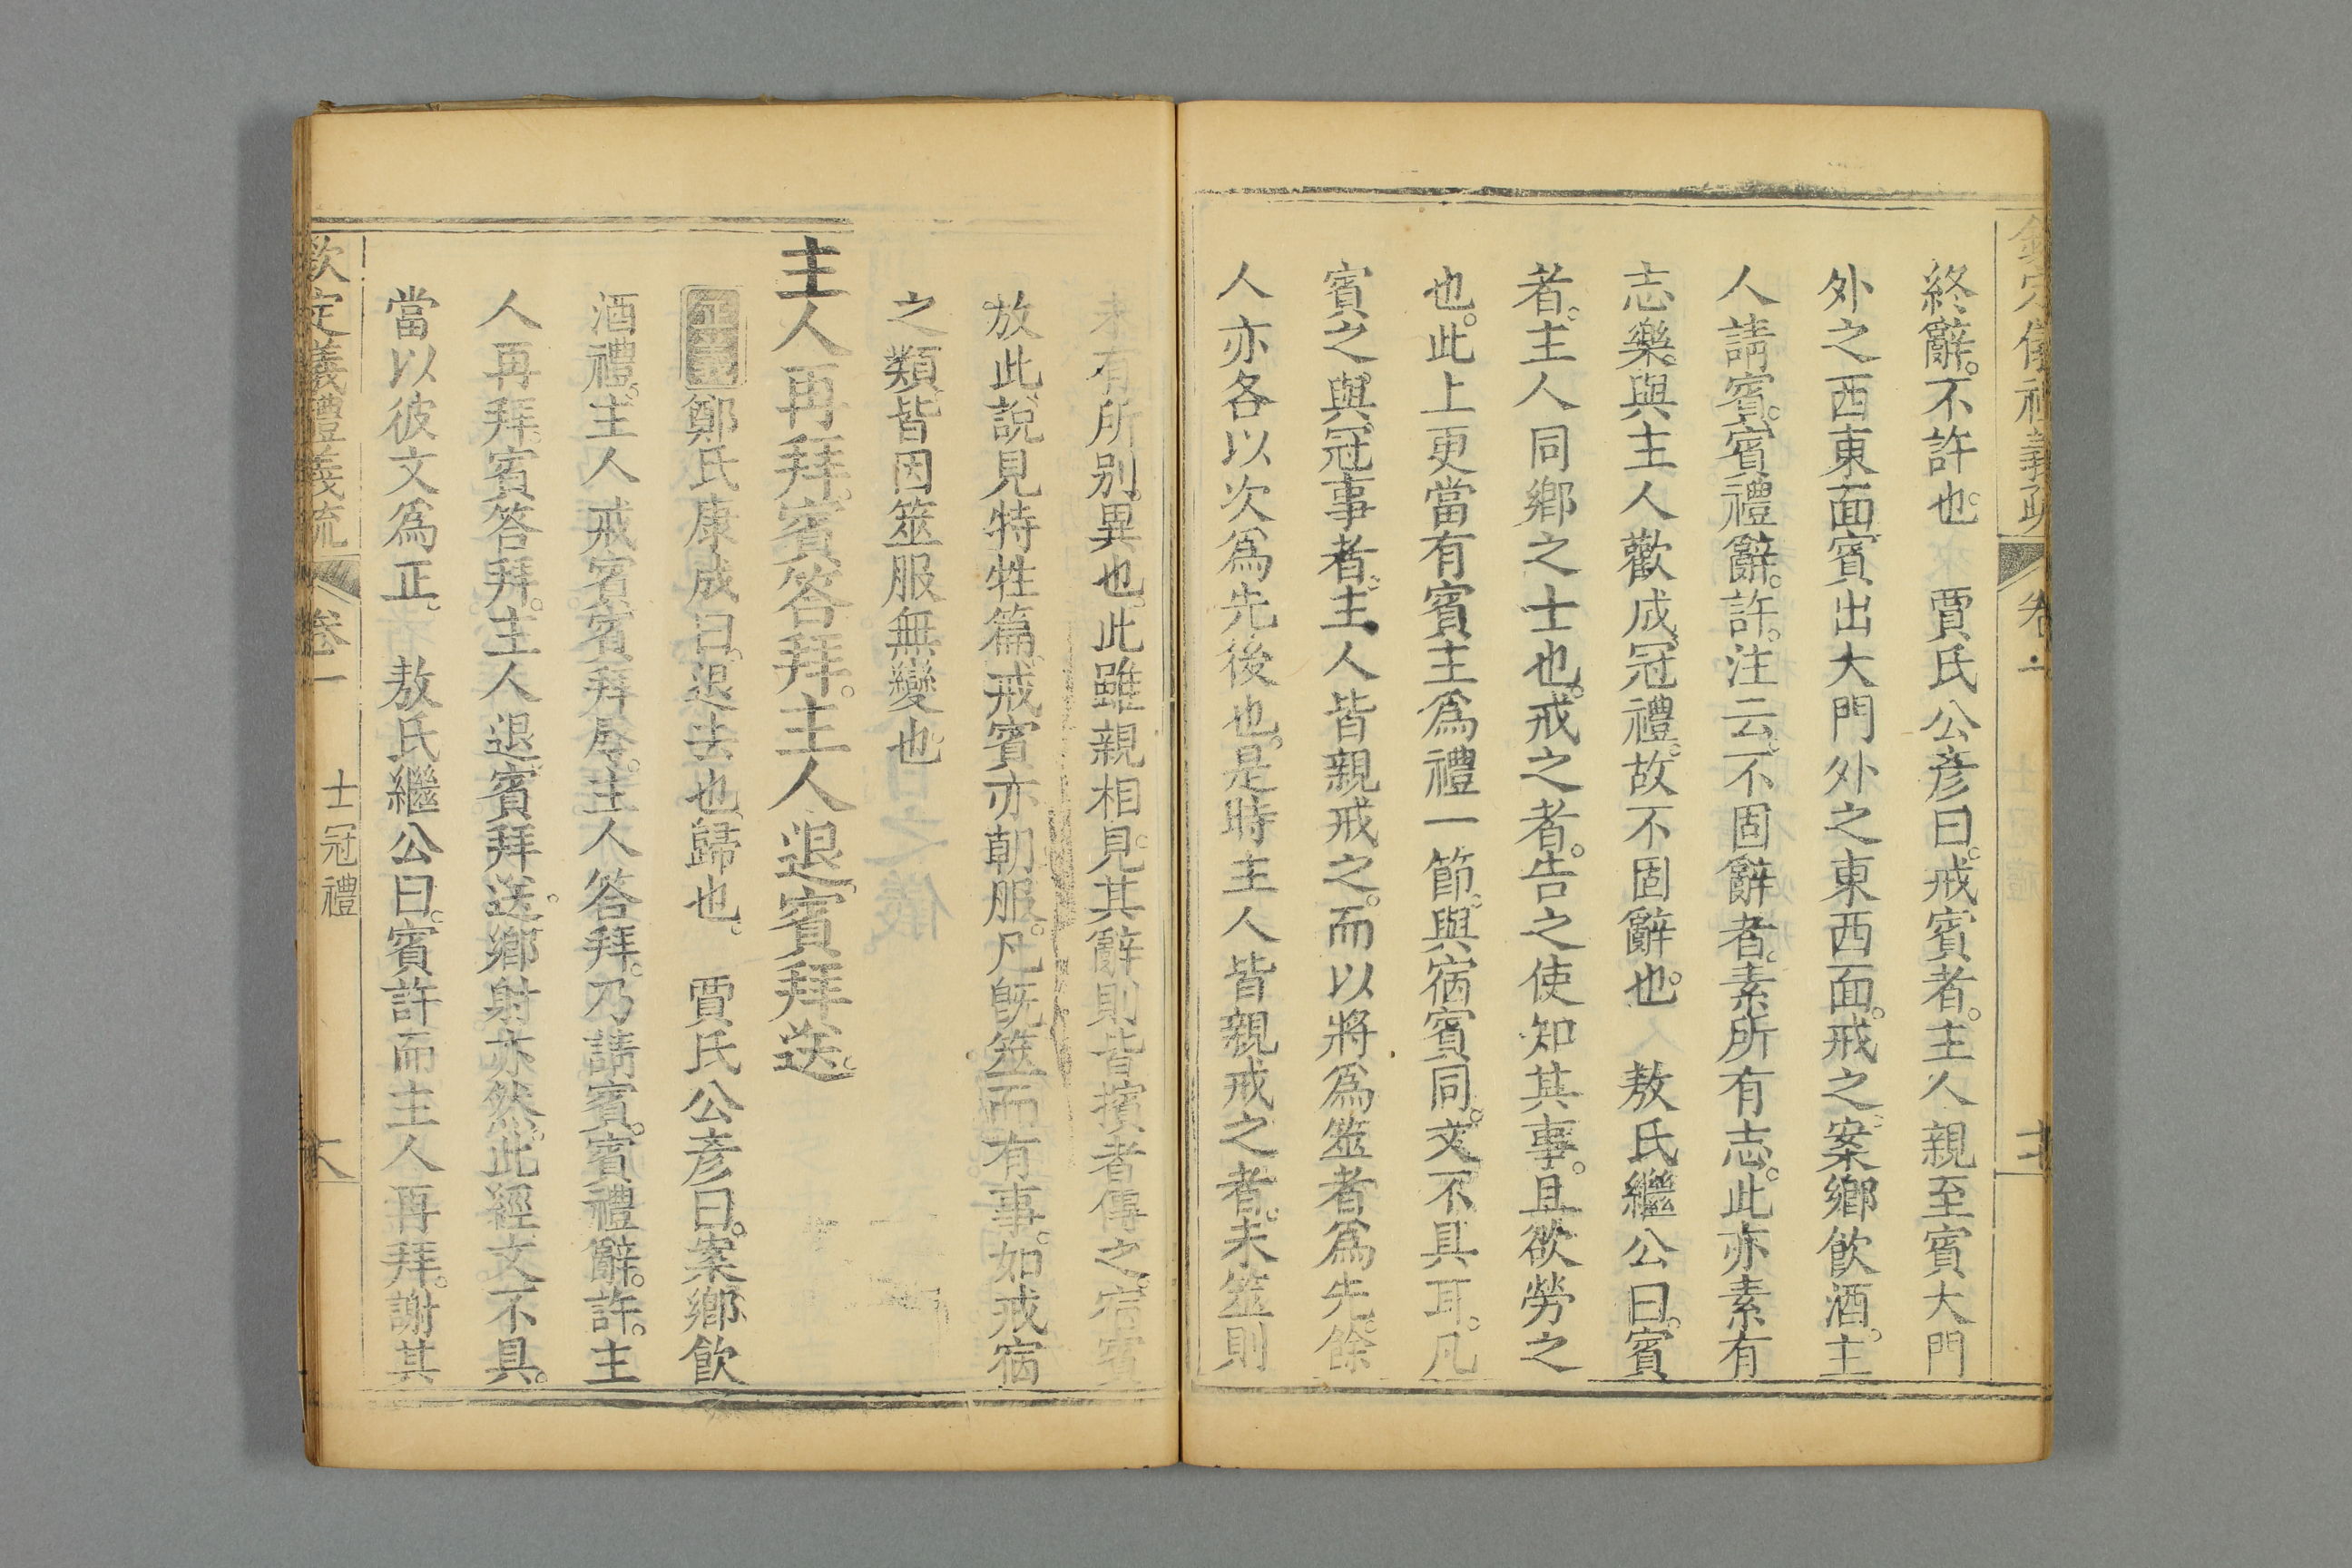 欽定儀禮義疏 卷一
終辭。不許也。 賈氏公彥曰。戒賓者。主人親至賓大門
外之西東面。賓出大門外之東西面。戒之。案鄉飲酒。主
人請賓。賓禮辭。許。注云。不固辭者。素所有志。此亦素有
志樂。與主人歡成冠禮。故不固辭也。 敖氏繼公曰。賓
者。主人同鄉之士也。戒之者。告之使知其事。且欲勞之
也。此上更當有賓主爲禮一節。與宿賓同。文不具耳。凡
賓之與冠事者。主人皆親戒之。而以將爲筮者爲先。餘
人亦各以次爲先後也。是時主人皆親戒之者。未筮則
未有所別異也。此雖親相見。其辭則皆擯者傳之。宿賓
放此。說見特牲篇。戒賓亦朝服。凡旣筮而有事。如戒宿
之類。皆因筮服無變也。
主人再拜。賓答拜。主人退。賓拜送。
正義鄭氏康成曰。退。去也。歸也。 賈氏公彥曰。案鄉飲
酒禮。主人戒賓。賓拜辱。主人答拜。乃請賓。賓禮辭。許。主
人再拜。賓答拜。主人退。賓拜送。鄉射亦然。此經文不具。
當以彼文爲正。 敖氏繼公曰。賓許而主人再拜。謝其
欽定儀禮義疏 卷一 士冠禮